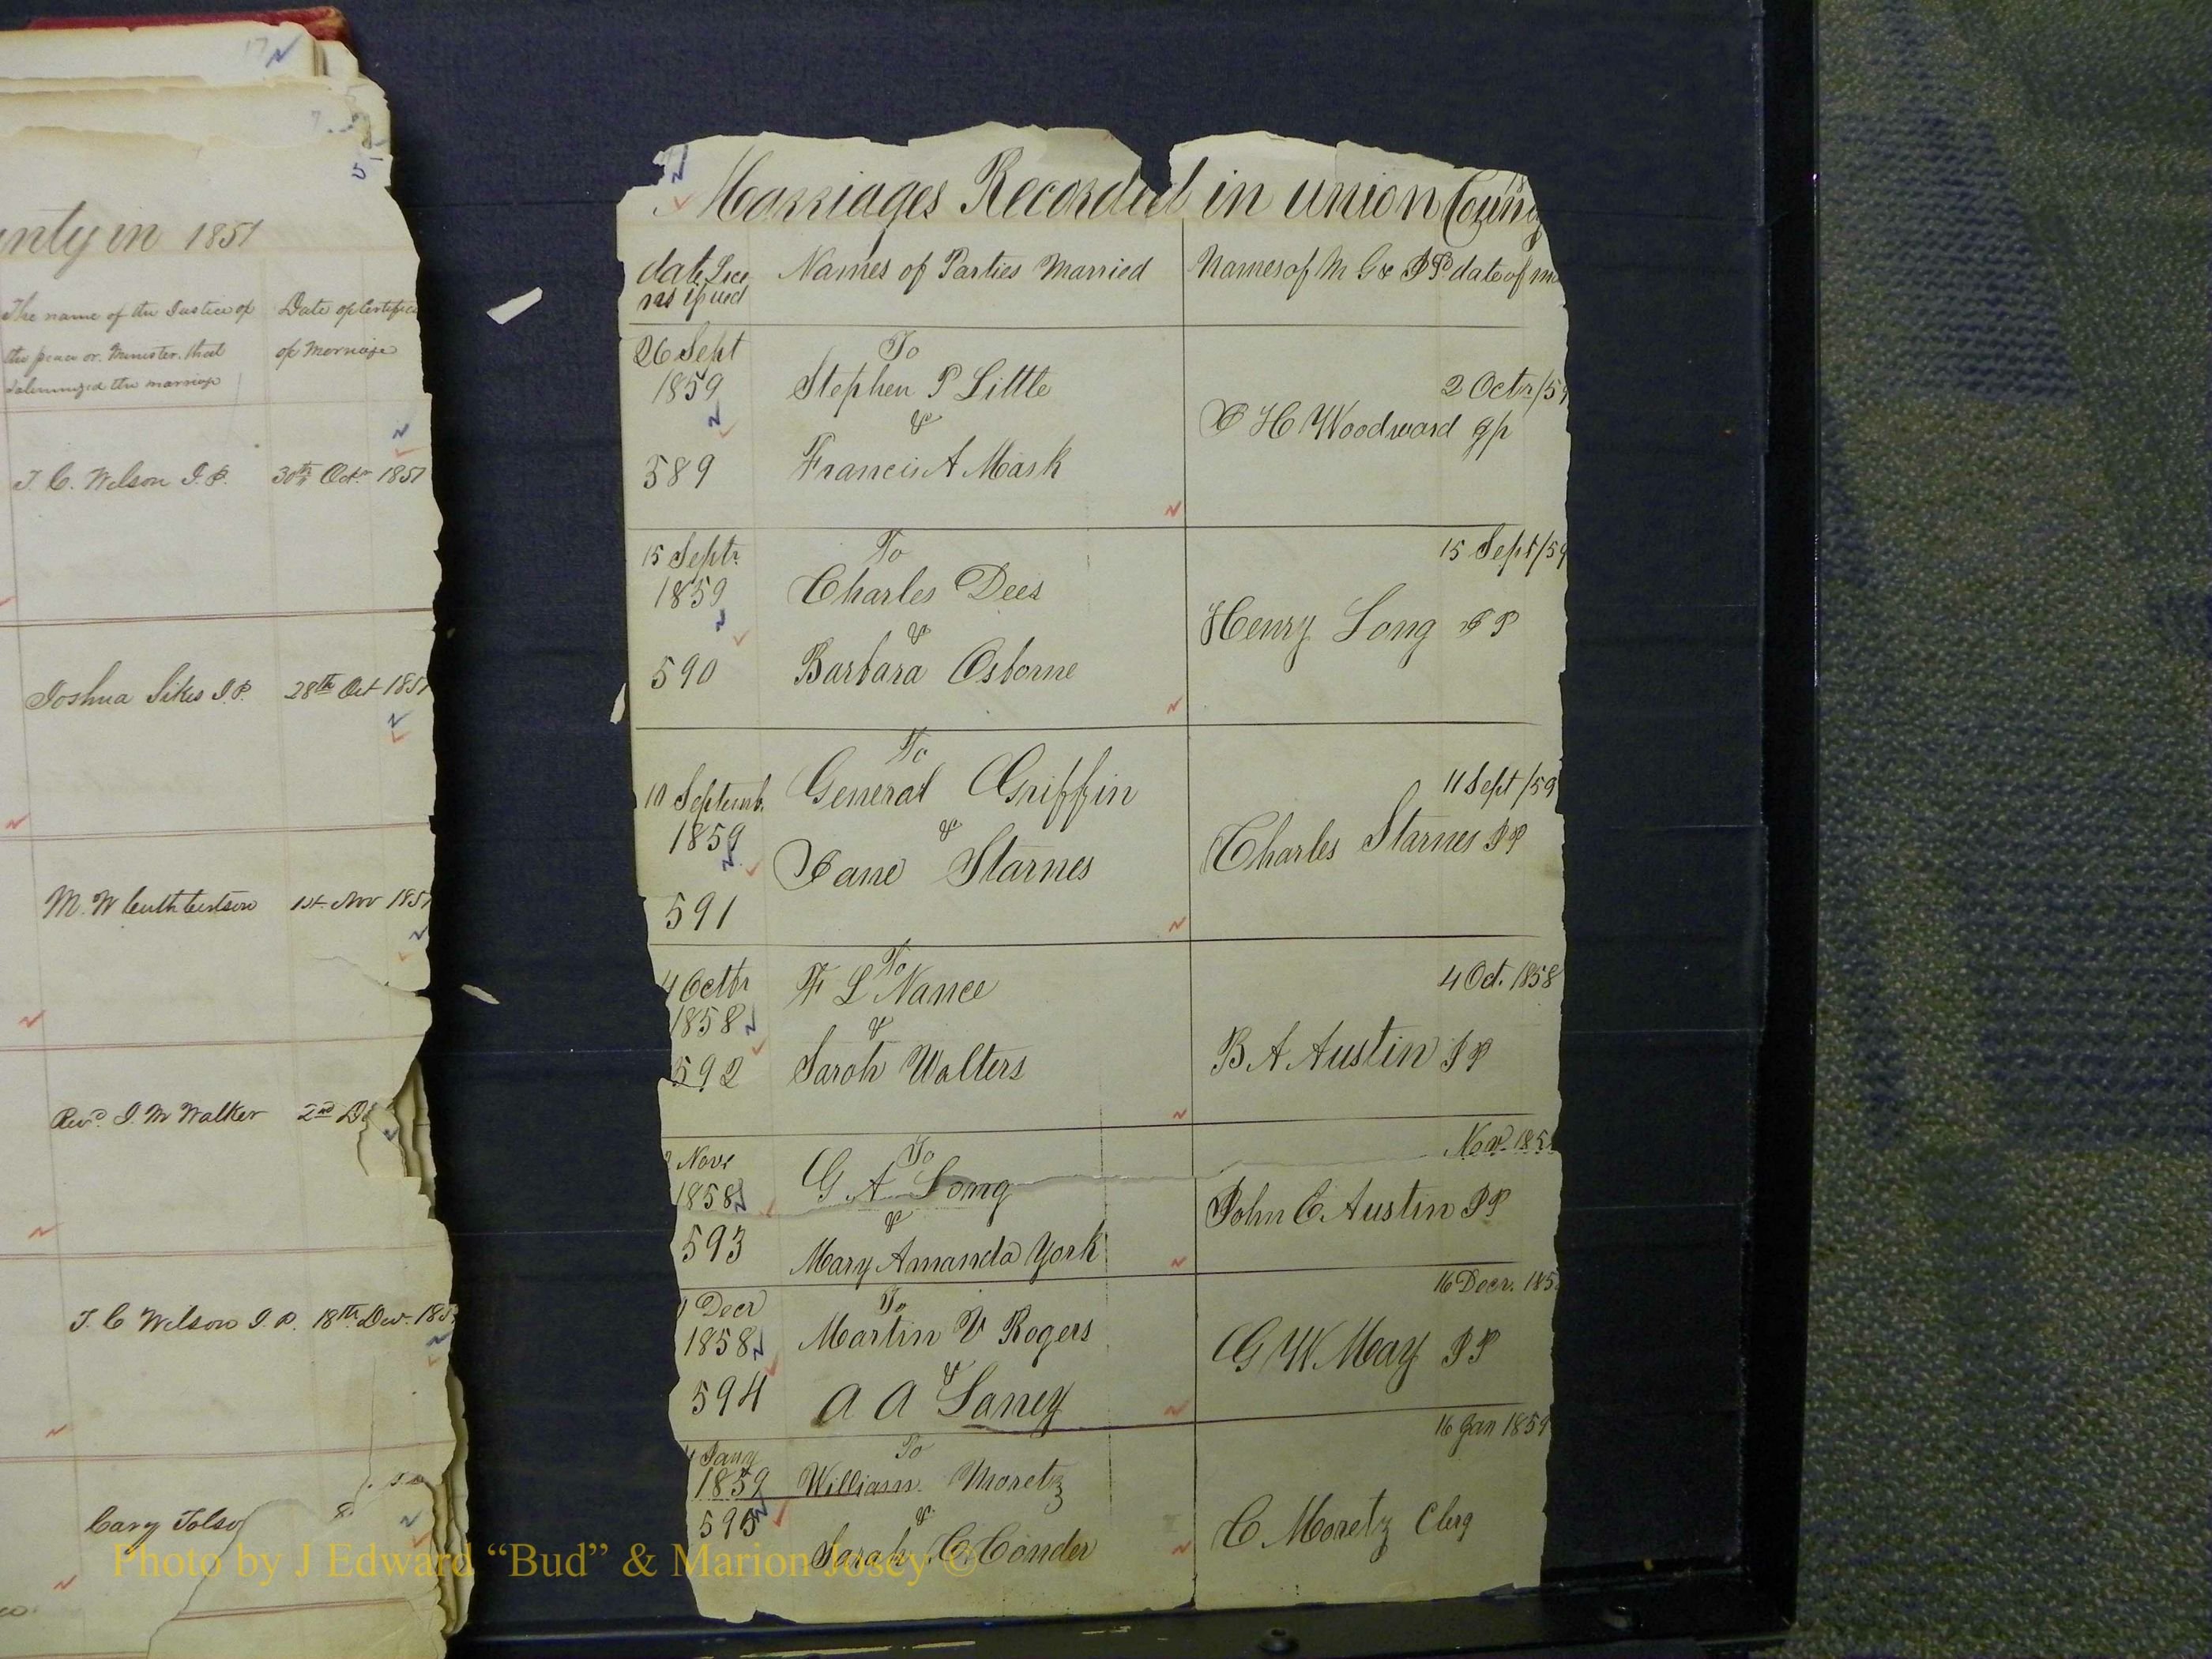 17
5
nty in 1851
The name of the Justice of
the peace or Minister that
solemnized the marriage
Date of Certifica
of Marriage
J. C. Wilson J. P. 30th Octr 1851
Joshua Sikes J. P. 28th Oct 1851
M. W Cuthbertson 1st Nov 1851
Revd J. M Walker 2nd
J. C Wilson J. P. 18th Dec 185
Cary
Marriages Recorded in union County
date Lice
ns issued
Names of Parties Married
Names of M G & JP date of ma
26 Sept
1859
589
To
Stephen P Little
&
Francis A Mask
2 Octr/59
C H Woodward Jp
15 Septr
1859
590
To
Charles Dees
&
Barbara Osborne
15 Sept/59
Henry Long J P
10 Septemb.
1859
591
To
General Griffin
&
Jane Starnes
11 Sept/59
Charles Starnes J P
4 Octbr
1858
592
To
F L Nance
&
Sarah Walters
4 Oct. 1858
B A Austin J P
Novr
1858
593
To
G A Long
&
Mary Amanda York
Nov 185
John C Austin J P
Decr
1858
594
To
Martin V Rogers
&
A A Laney
16 Decr. 185
G W May J P
4 Jany
1859
595
To
William Moretz
&
Sarah C. Conder
16 Jan 1859
C Moretz Clerg
Photo by J Edward “Bud” & Marion Josey ©